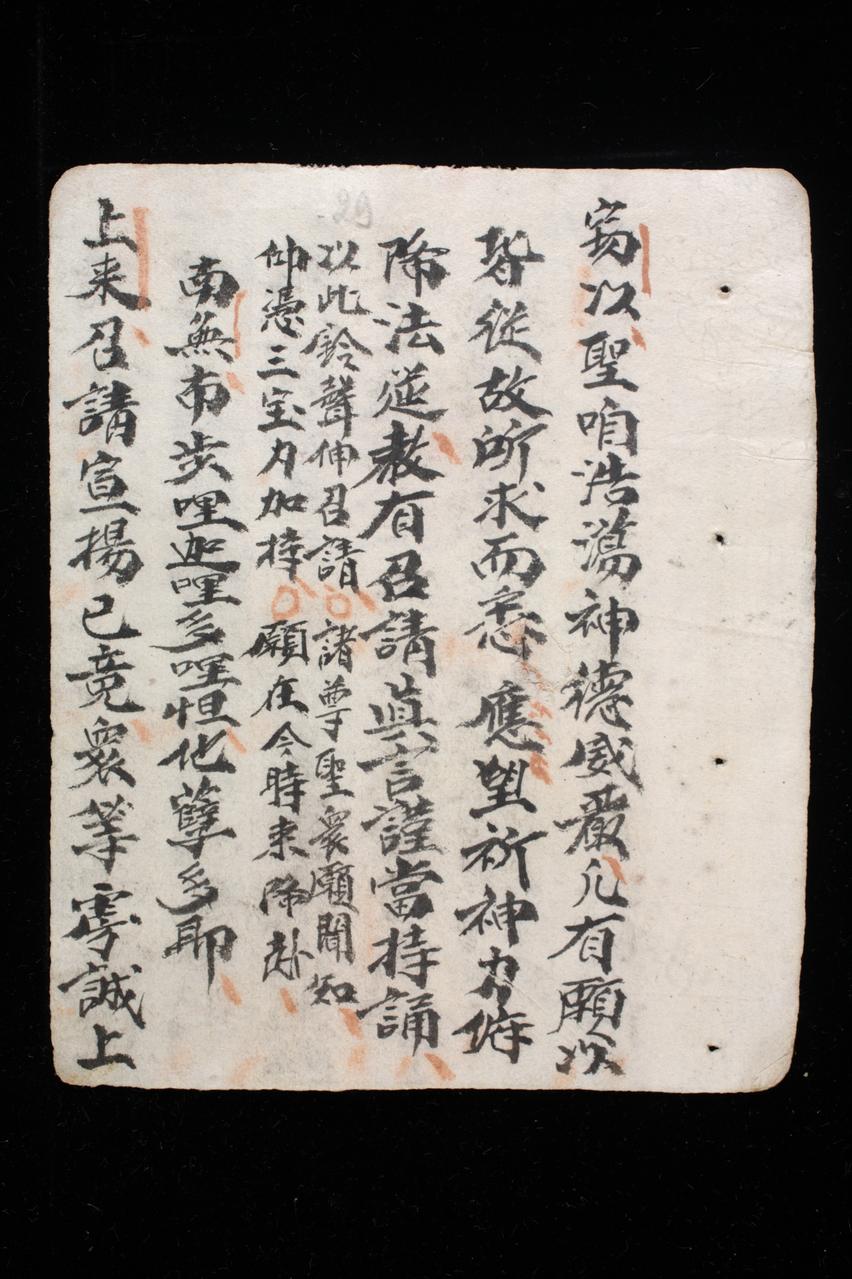 窃以聖咱浩蕩神德威嚴凡有願以
皆從故所求而悉應望祈神力俯
降法筵教有召請眞言謹當持誦
以此鈴聲伸召請 諸尊聖衆願聞知
仰憑三宝力加持 願在今時来降赴
南無布步哩迦哩多哩怛他孽多耶
上来召請宣揚已竟衆等虔誠上
29